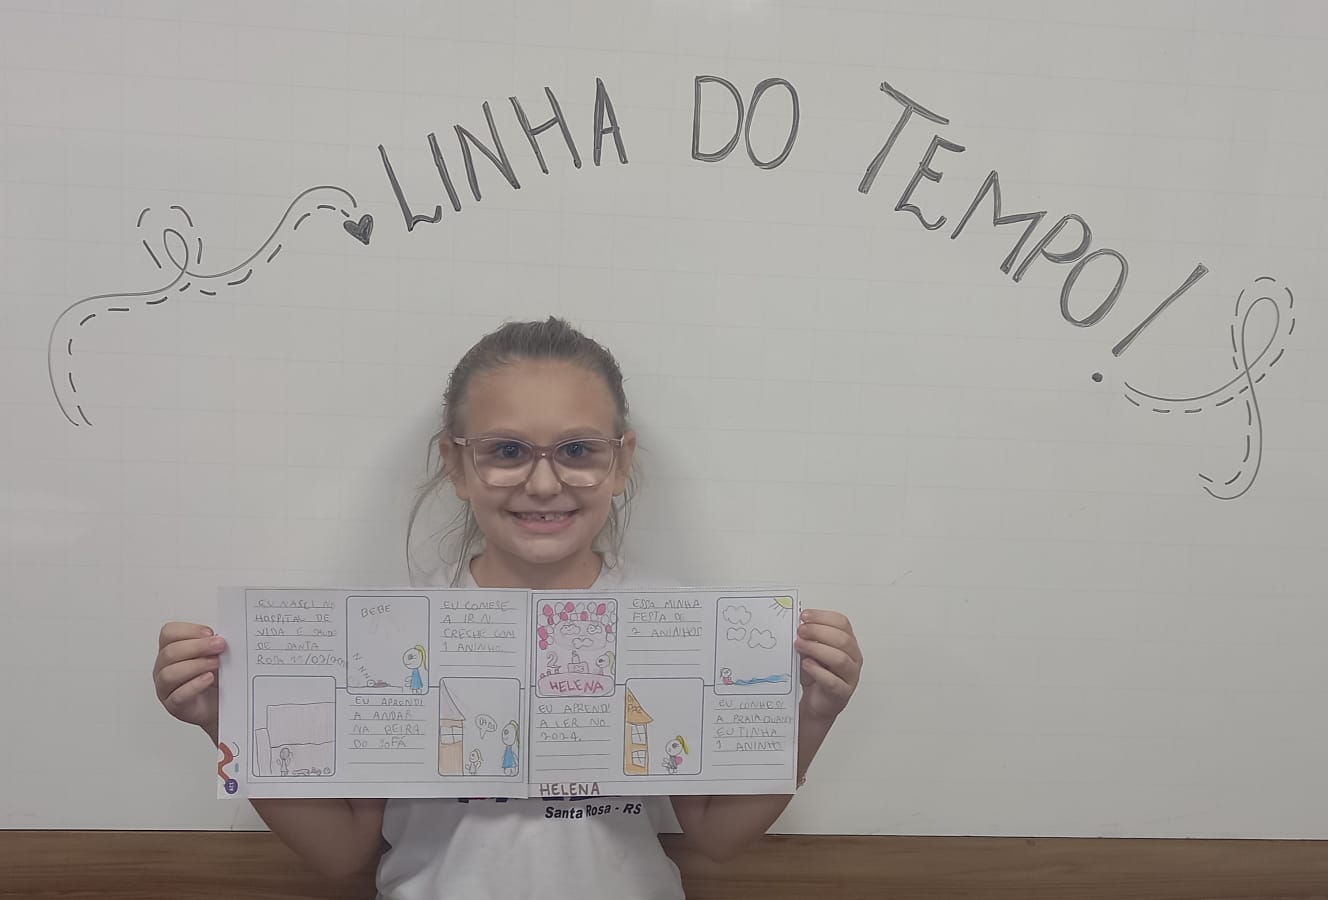 LINHA DO TEMPO!
EU NASCI NO
HOSPITAL DE
VIDA E SAÚDE
DE SANTA
ROSA 11/07/20
BEBE
EU COMESE
A IR N
CRECHE COM
1 ANINHO.
EU APRENDI
A ANDAR
NA BEIRA
DO SOFÁ
2
HELENA
ESSA MINHA
FESTA DE
2 ANINHOS
EU APRENDI
A LER NO
2024.
DA
PAZ
EU CONHESI
A PRAIA QUANDO
EU TINHA
1 ANINHO
HELENA
Santa Rosa - RS